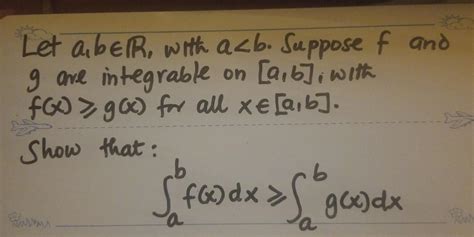 Let a,b∈ℝ, with a<b. Suppose f and
g are integrable on [a,b], with
f(x) ⩾ g(x) for all x∈[a,b].
Show that:
∫ₐᵇ f(x)dx ⩾ ∫ₐᵇ g(x)dx